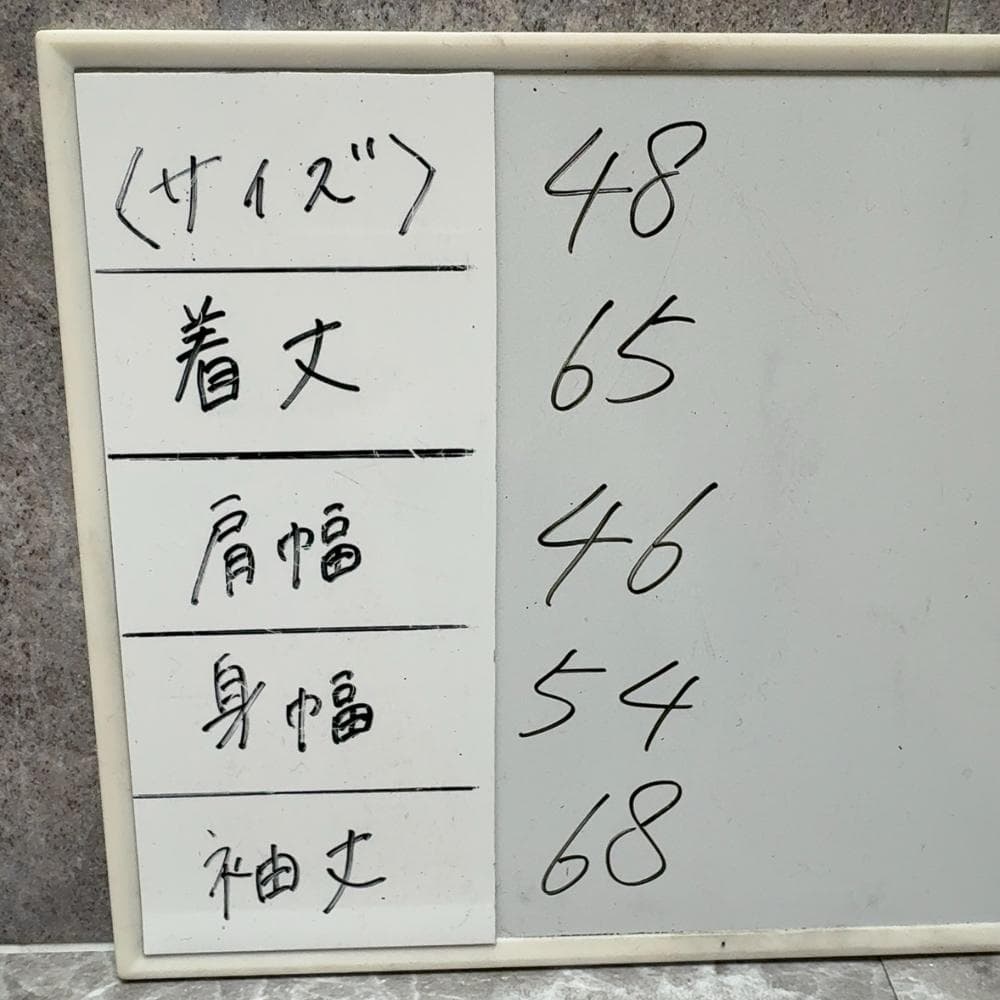 〈サイズ〉 48
着丈 65
肩幅 46
身幅 54
袖丈 68